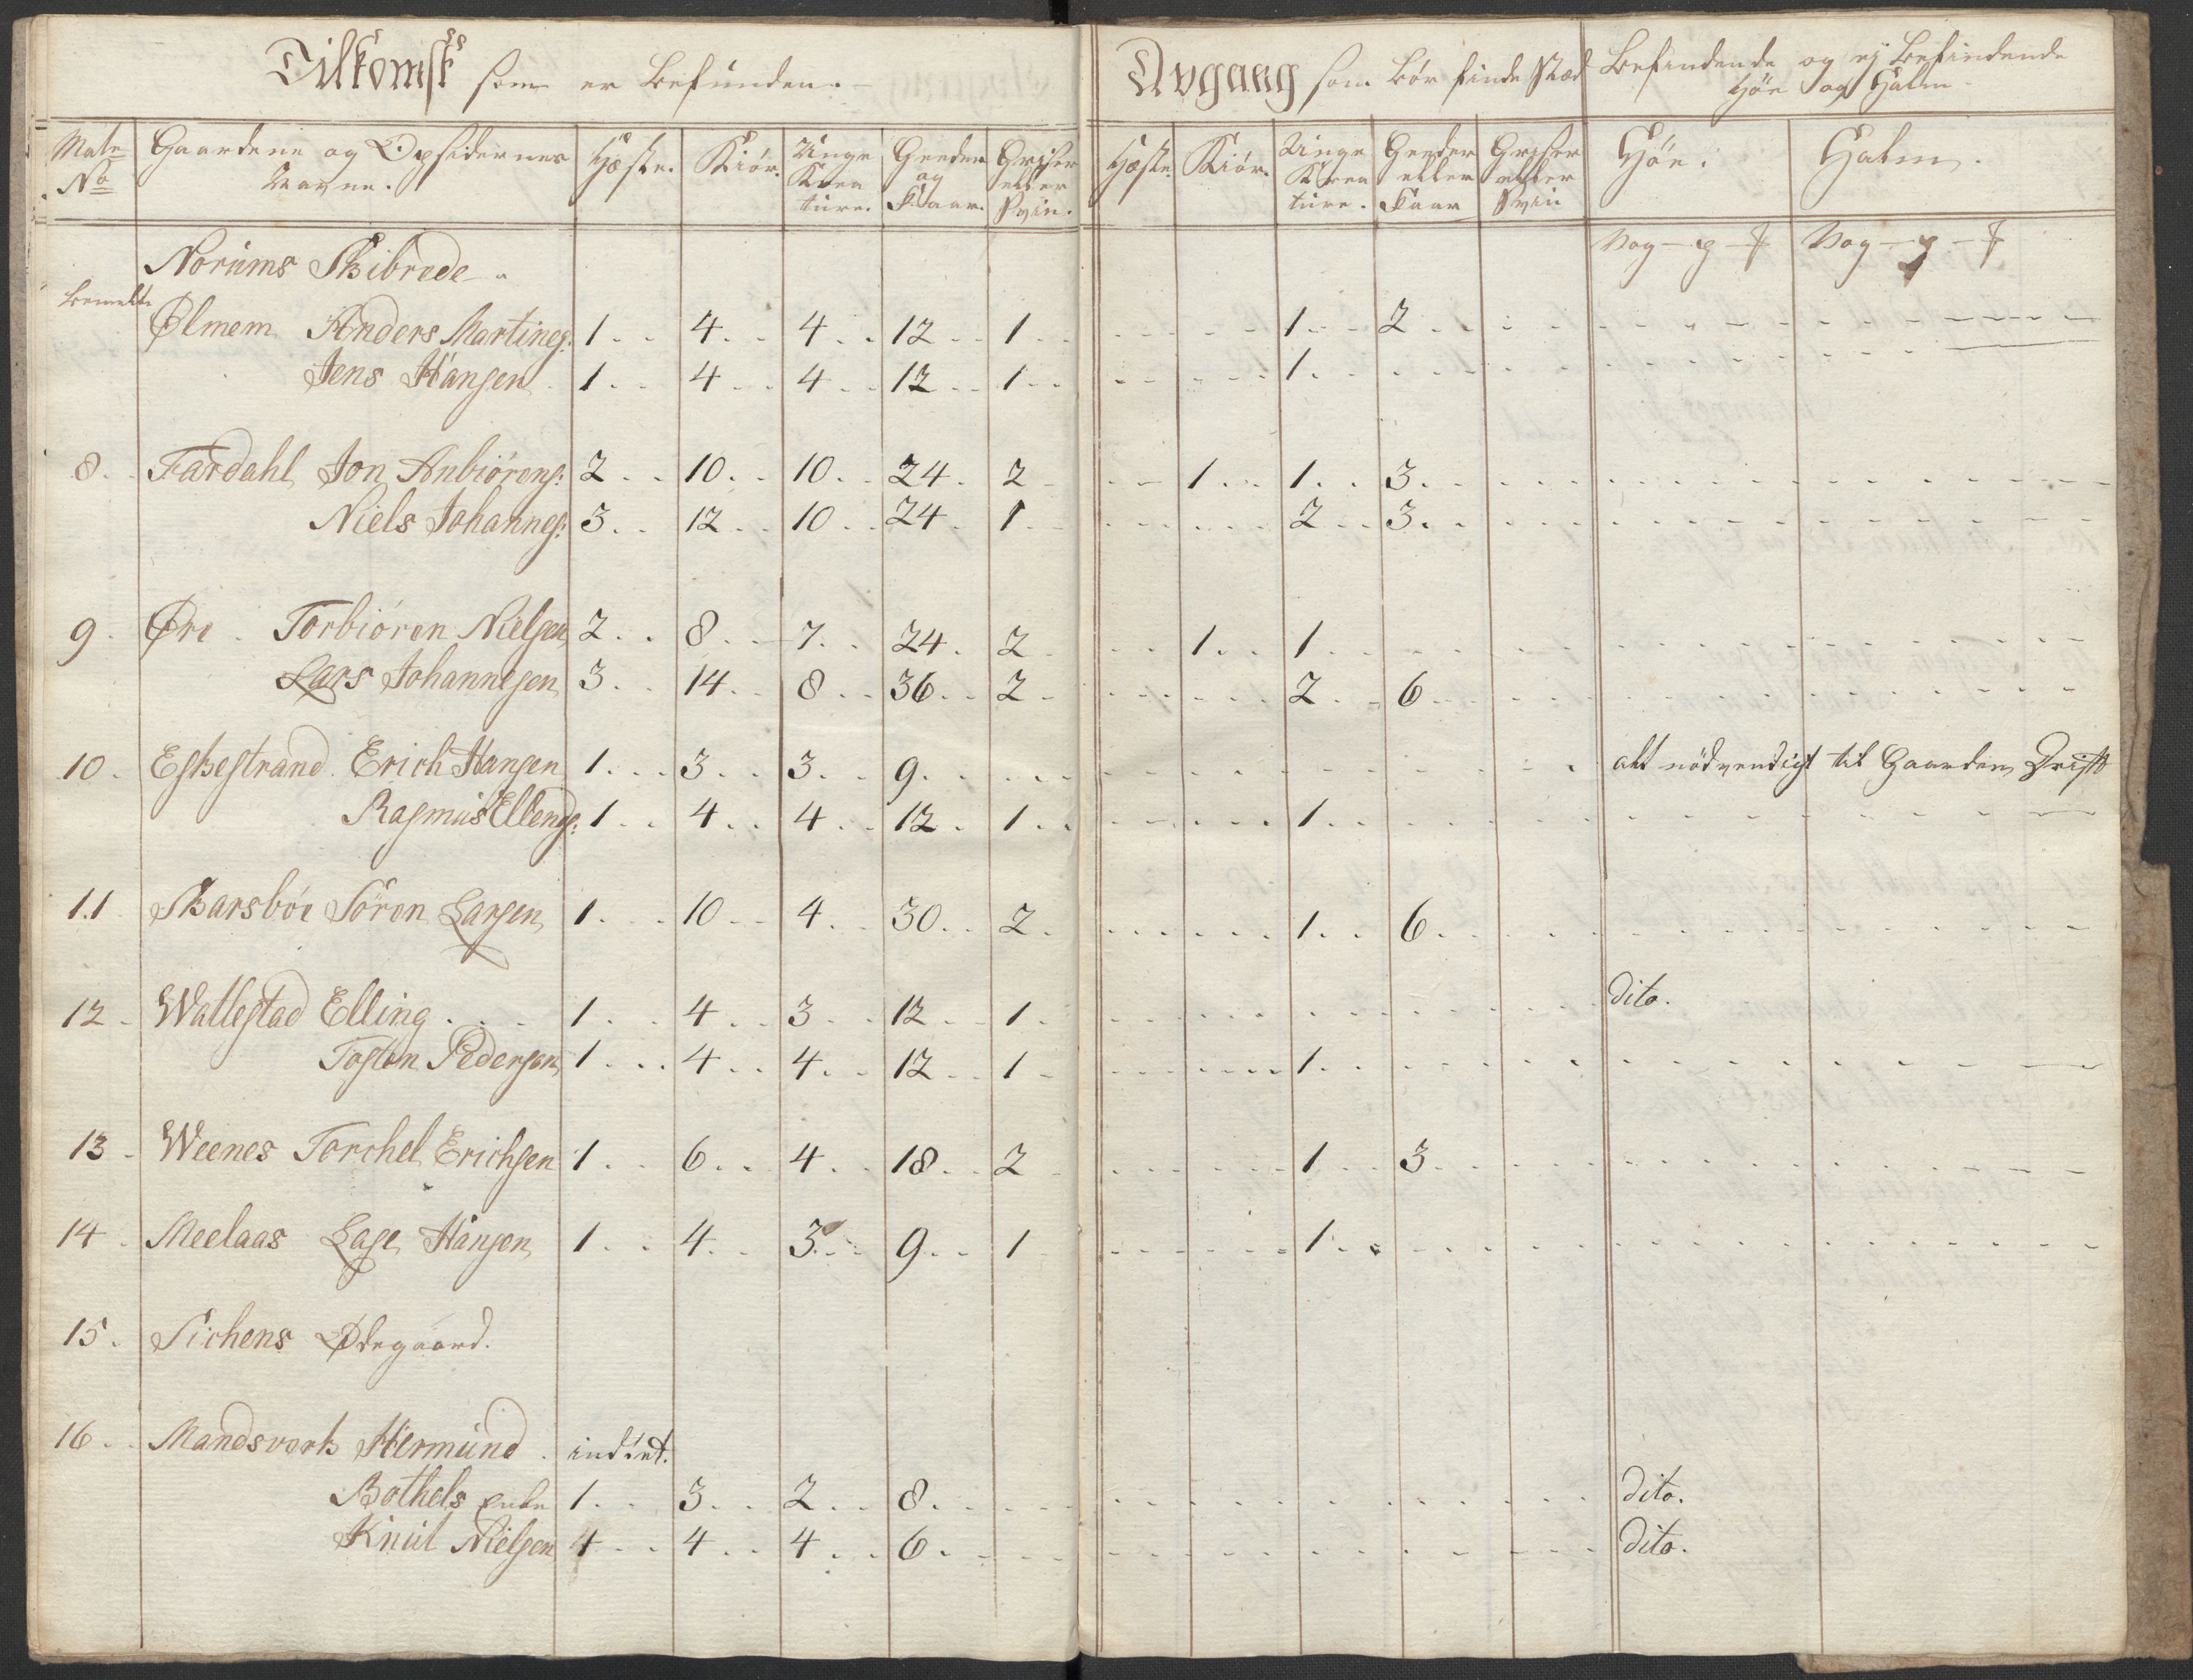 Tilkomst som er befunden.
Avgang som bør finde stæd
Befindende og ej Befindende
Høe og Halm
Matr No
Gaardene og Opsidernes Navne.
Heste.
Kiør.
Unge Kreature.
Geeder og Faar.
Griser eller Sviin.
Heste.
Kiør.
Unge Kreature.
Geeder eller Faar
Griser eller Sviin
Høe.
Halm.
Norums Skibrede
Vog
Vog
bemelte
Ølmem Anders Martines: 1 4 4 12 1 1 2
Jens Hansen 1 4 4 12 1 1
8. Fardahl Jon Anbiørens: 2 10 10 24 2 1 1 3
Niels Johannes: 3 12 10 24 1 2 3
9. Øre Torbiøren Nielsen 2 8 7 24 2 1 1
Lars Johannesen 3 14 8 36 2 2 6
10. Eskestrand Erich Hansen 1 3 3 9 alt nødvendigt til Gaardens Drift
Rasmus Ellends: 1 4 4 12 1 1
11 Skarsbøe Søren Larsen 1 10 4 30 2 1 6
12 Wallestad Elling 1 4 3 12 1 dito.
Tosten Pedersen 1 4 4 12 1 1
13 Weenes Torchel Erichsen 1 6 4 18 2 1 3
14 Meelaas Lase Hansen 1 4 3 9 1 1
15. Sichens Ødegaard.
16. Mandsverk Hermund indtet.
Bothels Enke 1 3 2 8 dito.
Knut Nielsen 4 4 6 dito.